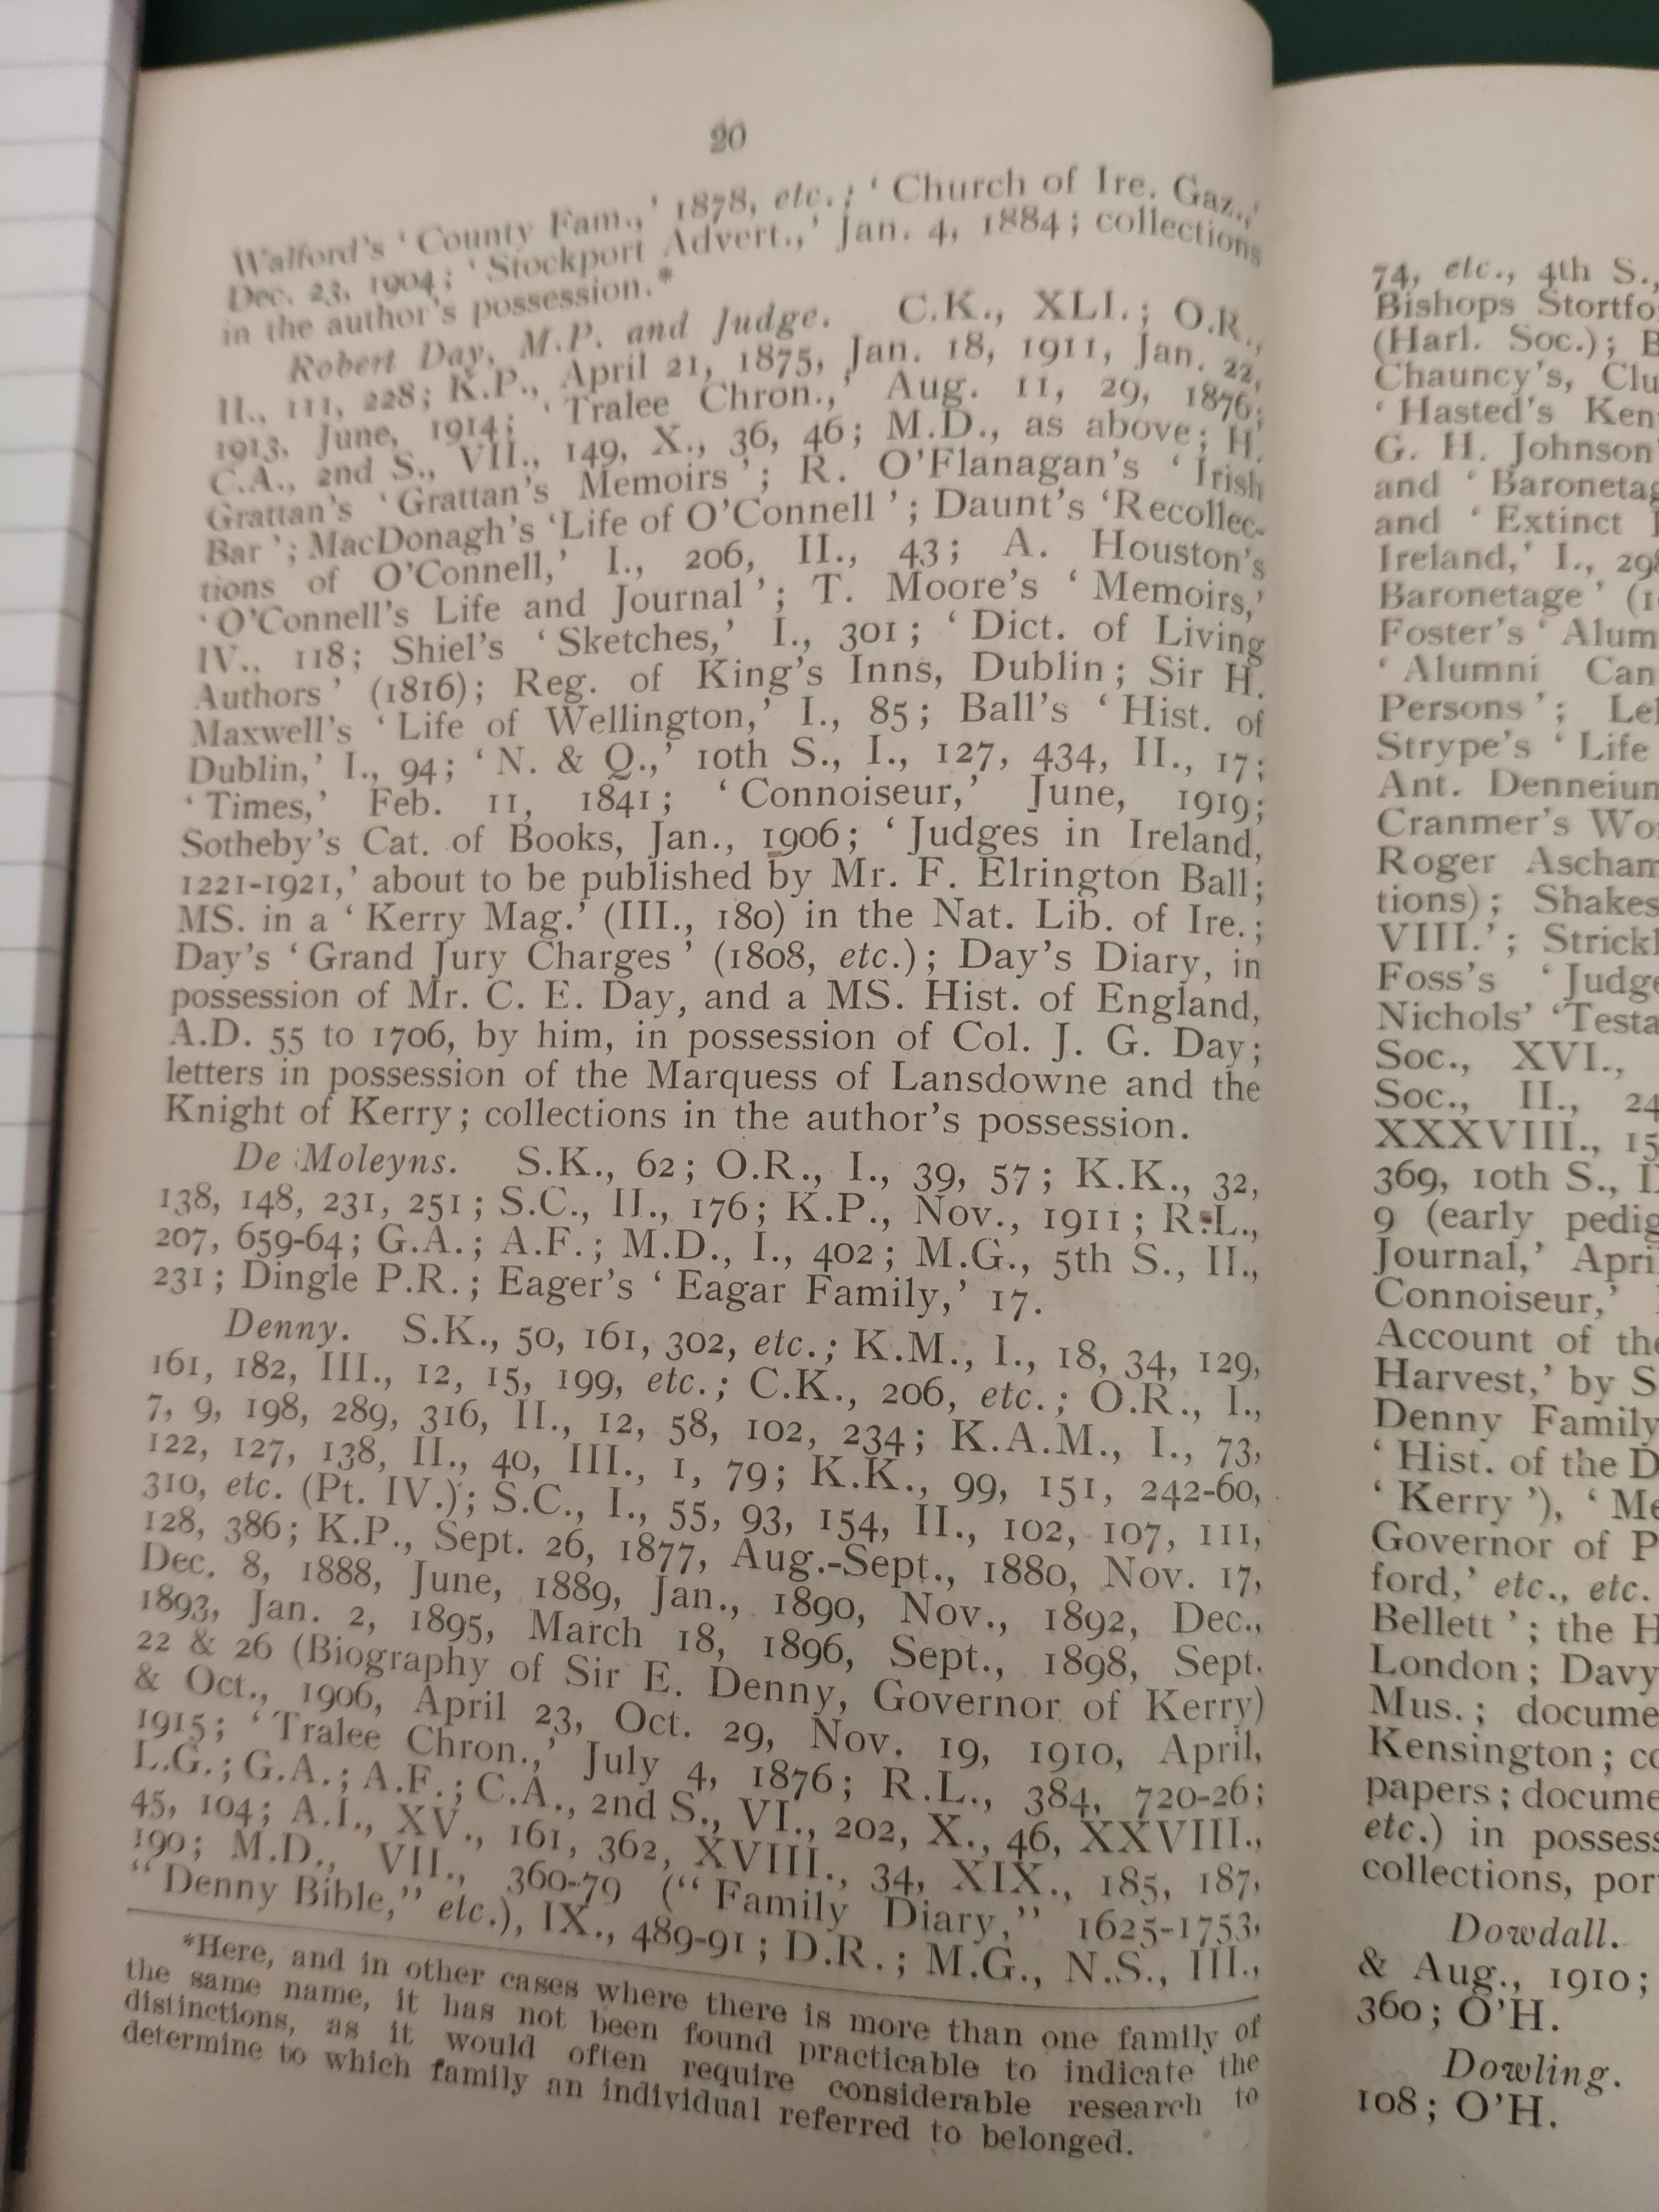 20
Walford's ' County Fam.,' 1878, etc.; ' Church of Ire. Gaz.,'
Dec. 23, 1904; ' Stockport Advert.,' Jan. 4, 1884; collections
in the author's possession.*
Robert Day, M.P. and Judge. C.K., XLI.; O.R.,
II., 111, 228; K.P., April 21, 1875, Jan. 18, 1911, Jan. 22,
1913, June, 1914; ' Tralee Chron.,' Aug. 11, 29, 1876;
C.A., 2nd S., VII., 149, X., 36, 46; M.D., as above; H.
Grattan's ' Grattan's Memoirs '; R. O'Flanagan's ' Irish
Bar '; MacDonagh's 'Life of O'Connell '; Daunt's 'Recollec-
tions of O'Connell,' I., 206, II., 43; A. Houston's
' O'Connell's Life and Journal '; T. Moore's ' Memoirs,'
IV., 118; Shiel's ' Sketches,' I., 301; ' Dict. of Living
Authors ' (1816); Reg. of King's Inns, Dublin; Sir H.
Maxwell's ' Life of Wellington,' I., 85; Ball's ' Hist. of
Dublin,' I., 94; ' N. & Q.,' 10th S., I., 127, 434, II., 17;
' Times,' Feb. 11, 1841; ' Connoiseur,' June, 1919;
Sotheby's Cat. of Books, Jan., 1906; ' Judges in Ireland,
1221-1921,' about to be published by Mr. F. Elrington Ball;
MS. in a ' Kerry Mag.' (III., 180) in the Nat. Lib. of Ire.;
Day's ' Grand Jury Charges ' (1808, etc.); Day's Diary, in
possession of Mr. C. E. Day, and a MS. Hist. of England,
A.D. 55 to 1706, by him, in possession of Col. J. G. Day;
letters in possession of the Marquess of Lansdowne and the
Knight of Kerry; collections in the author's possession.
De Moleyns. S.K., 62; O.R., I., 39, 57; K.K., 32,
138, 148, 231, 251; S.C., II., 176; K.P., Nov., 1911; R.L.,
207, 659-64; G.A.; A.F.; M.D., I., 402; M.G., 5th S., II.,
231; Dingle P.R.; Eager's ' Eagar Family,' 17.
Denny. S.K., 50, 161, 302, etc.; K.M., I., 18, 34, 129,
161, 182, III., 12, 15, 199, etc.; C.K., 206, etc.; O.R., I.,
7, 9, 198, 289, 316, II., 12, 58, 102, 234; K.A.M., I., 73,
122, 127, 138, II., 40, III., 1, 79; K.K., 99, 151, 242-60,
310, etc. (Pt. IV.); S.C., I., 55, 93, 154, II., 102, 107, 111,
128, 386; K.P., Sept. 26, 1877, Aug.-Sept., 1880, Nov. 17,
Dec. 8, 1888, June, 1889, Jan., 1890, Nov., 1892, Dec.,
1893, Jan. 2, 1895, March 18, 1896, Sept., 1898, Sept.
22 & 26 (Biography of Sir E. Denny, Governor of Kerry)
& Oct., 1906, April 23, Oct. 29, Nov. 19, 1910, April,
1915; ' Tralee Chron.,' July 4, 1876; R.L., 384, 720-26;
L.G.; G.A.; A.F.; C.A., 2nd S., VI., 202, X., 46, XXVIII.,
45, 104; A.I., XV., 161, 362, XVIII., 34, XIX., 185, 187,
190; M.D., VII., 360-79 (" Family Diary," 1625-1753,
" Denny Bible," etc.), IX., 489-91; D.R.; M.G., N.S., III.,
*Here, and in other cases where there is more than one family of
the same name, it has not been found practicable to indicate the
distinctions, as it would often require considerable research to
determine to which family an individual referred to belonged.
74, etc., 4th S.,
Bishops Stortfo
(Harl. Soc.); B
Chauncy's, Clu
' Hasted's Ken
G. H. Johnson'
and ' Baronetag
and ' Extinct
Ireland,' I., 298
Baronetage ' (1
Foster's ' Alum
' Alumni Can
Persons '; Le
Strype's ' Life
Ant. Denneiun
Cranmer's Wo
Roger Ascham
tions); Shakes
VIII.'; Strickl
Foss's ' Judge
Nichols' 'Testa
Soc., XVI.,
Soc., II., 24
XXXVIII., 15
369, 10th S., I
9 (early pedig
Journal,' Apri
Connoiseur,'
Account of the
Harvest,' by S
Denny Family
' Hist. of the D
' Kerry '), ' Me
Governor of P
ford,' etc., etc.
Bellett '; the H
London; Davy
Mus.; docume
Kensington; co
papers; docume
etc.) in possess
collections, por
Dowdall.
& Aug., 1910;
360; O'H.
Dowling.
108; O'H.